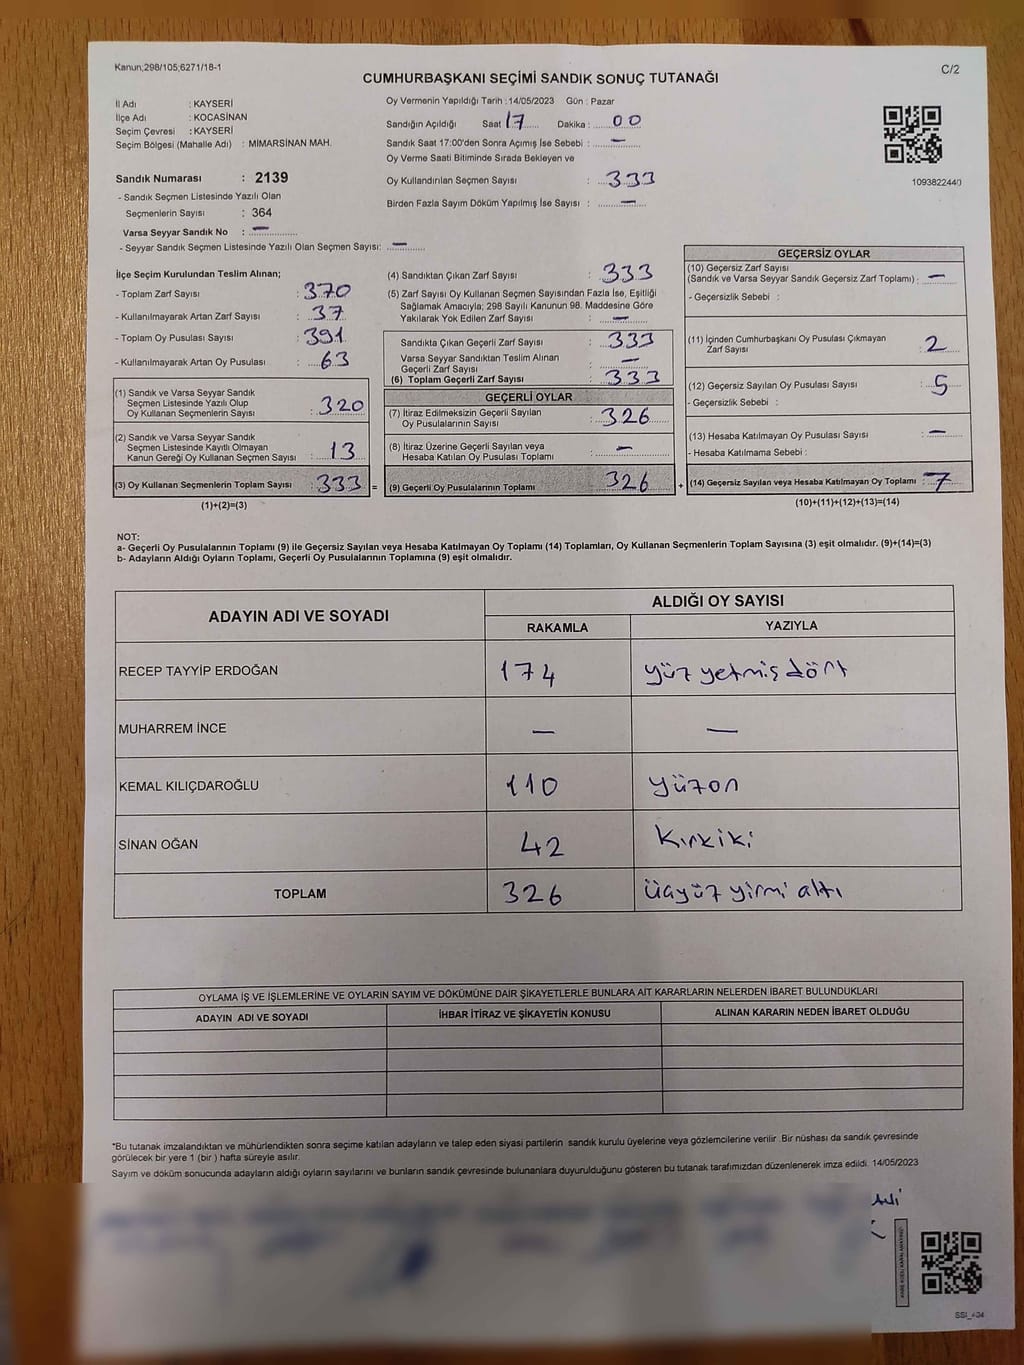 Kanun;298/105;6271/18-1
C/2
CUMHURBAŞKANI SEÇİMİ SANDIK SONUÇ TUTANAĞI
İl Adı : KAYSERİ
İlçe Adı : KOCASİNAN
Seçim Çevresi : KAYSERİ
Seçim Bölgesi (Mahalle Adı) : MİMARSİNAN MAH.
Sandık Numarası : 2139
- Sandık Seçmen Listesinde Yazılı Olan
Seçmenlerin Sayısı : 364
Varsa Seyyar Sandık No : —
- Seyyar Sandık Seçmen Listesinde Yazılı Olan Seçmen Sayısı: —
Oy Vermenin Yapıldığı Tarih : 14/05/2023 Gün : Pazar
Sandığın Açıldığı Saat 17 Dakika : 00
Sandık Saat 17:00'den Sonra Açımış İse Sebebi : —
Oy Verme Saati Bitiminde Sırada Bekleyen ve
Oy Kullandırılan Seçmen Sayısı : 333
Birden Fazla Sayım Döküm Yapılmış İse Sayısı : —
1093822440
İlçe Seçim Kurulundan Teslim Alınan;
- Toplam Zarf Sayısı : 370
- Kullanılmayarak Artan Zarf Sayısı : 37
- Toplam Oy Pusulası Sayısı : 391
- Kullanılmayarak Artan Oy Pusulası : 63
(1) Sandık ve Varsa Seyyar Sandık
Seçmen Listesinde Yazılı Olup
Oy Kullanan Seçmenlerin Sayısı : 320
(2) Sandık ve Varsa Seyyar Sandık
Seçmen Listesinde Kayıtlı Olmayan
Kanun Gereği Oy Kullanan Seçmen Sayısı : 13
(3) Oy Kullanan Seçmenlerin Toplam Sayısı : 333 =
(1)+(2)=(3)
(4) Sandıktan Çıkan Zarf Sayısı : 333
(5) Zarf Sayısı Oy Kullanan Seçmen Sayısından Fazla İse, Eşitliği
Sağlamak Amacıyla; 298 Sayılı Kanunun 98. Maddesine Göre
Yakılarak Yok Edilen Zarf Sayısı : —
Sandıkta Çıkan Geçerli Zarf Sayısı : 333
Varsa Seyyar Sandıktan Teslim Alınan
Geçerli Zarf Sayısı : —
(6) Toplam Geçerli Zarf Sayısı : 333
GEÇERLİ OYLAR
(7) İtiraz Edilmeksizin Geçerli Sayılan
Oy Pusulalarının Sayısı : 326
(8) İtiraz Üzerine Geçerli Sayılan veya
Hesaba Katılan Oy Pusulası Toplamı : —
(9) Geçerli Oy Pusulalarının Toplamı : 326 +
GEÇERSİZ OYLAR
(10) Geçersiz Zarf Sayısı
(Sandık ve Varsa Seyyar Sandık Geçersiz Zarf Toplamı) : —
- Geçersizlik Sebebi :
(11) İçinden Cumhurbaşkanı Oy Pusulası Çıkmayan
Zarf Sayısı : 2
(12) Geçersiz Sayılan Oy Pusulası Sayısı : 5
- Geçersizlik Sebebi :
(13) Hesaba Katılmayan Oy Pusulası Sayısı : —
- Hesaba Katılmama Sebebi :
(14) Geçersiz Sayılan veya Hesaba Katılmayan Oy Toplamı : 7
(10)+(11)+(12)+(13)=(14)
NOT:
a- Geçerli Oy Pusulalarının Toplamı (9) ile Geçersiz Sayılan veya Hesaba Katılmayan Oy Toplamı (14) Toplamları, Oy Kullanan Seçmenlerin Toplam Sayısına (3) eşit olmalıdır. (9)+(14)=(3)
b- Adayların Aldığı Oyların Toplamı, Geçerli Oy Pusulalarının Toplamına (9) eşit olmalıdır.
ADAYIN ADI VE SOYADI
ALDIĞI OY SAYISI
RAKAMLA YAZIYLA
RECEP TAYYİP ERDOĞAN 174 yüz yetmiş dört
MUHARREM İNCE — —
KEMAL KILIÇDAROĞLU 110 yüzon
SİNAN OĞAN 42 kırkiki
TOPLAM 326 üçyüz yirmi altı
OYLAMA İŞ VE İŞLEMLERİNE VE OYLARIN SAYIM VE DÖKÜMÜNE DAİR ŞİKAYETLERLE BUNLARA AİT KARARLARIN NELERDEN İBARET BULUNDUKLARI
ADAYIN ADI VE SOYADI İHBAR İTİRAZ VE ŞİKAYETİN KONUSU ALINAN KARARIN NEDEN İBARET OLDUĞU
*Bu tutanak imzalandıktan ve mühürlendikten sonra seçime katılan adayların ve talep eden siyasi partilerin sandık kurulu üyelerine veya gözlemcilerine verilir. Bir nüshası da sandık çevresinde
görülecek bir yere 1 (bir ) hafta süreyle asılır.
Sayım ve döküm sonucunda adayların aldığı oyların sayılarını ve bunların sandık çevresinde bulunanlara duyurulduğunu gösteren bu tutanak tarafımızdan düzenlenerek imza edildi. 14/05/2023